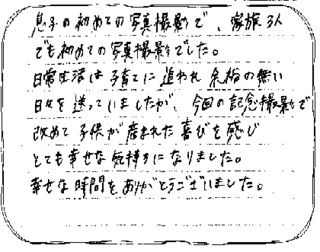 息子の初めての写真撮影で、家族3人
でも初めての写真撮影でした。
日常生活は子育てに追われ余裕の無い
日々を送っていましたが、今回の記念撮影で
改めて子供が産まれた喜びを感じ
とても幸せな気持ちになりました。
幸せな時間をありがとうございました。